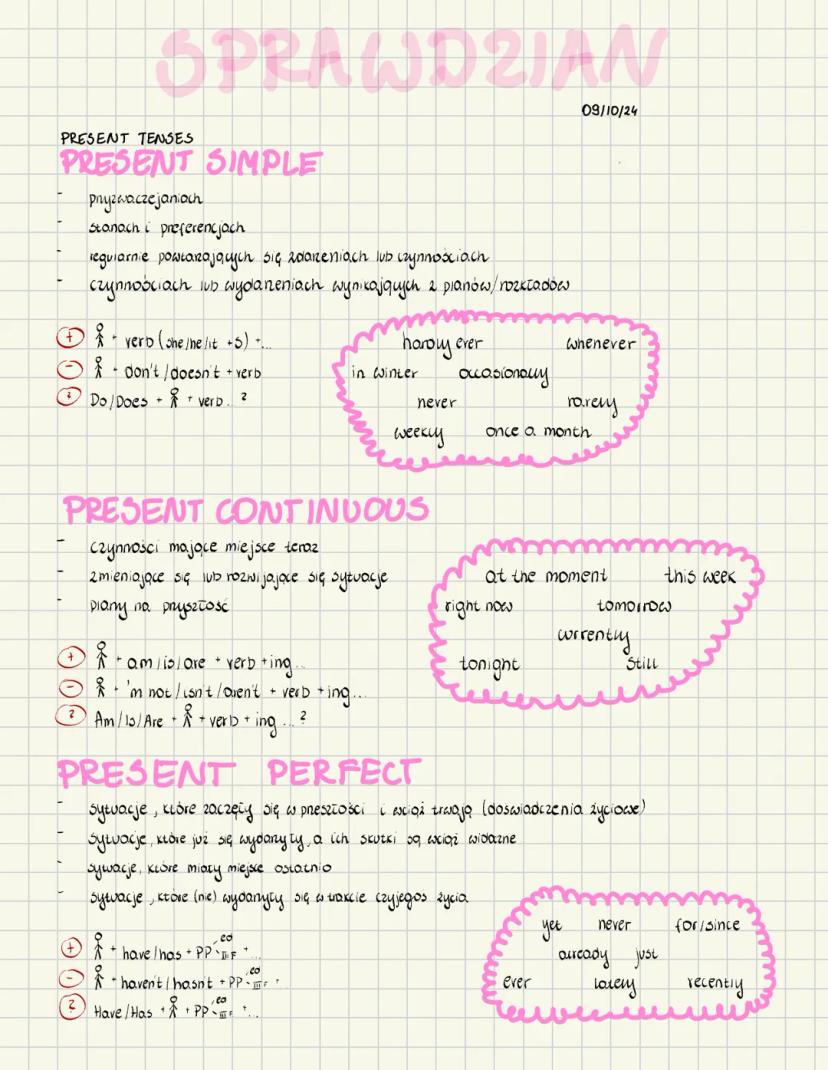 SPRAWDZIAN
09/10/24
PRESENT TENSES
PRESENT SIMPLE
- przyzwaczejaniach
- stanach i preferencjach
- regularnie powtarzających się zdarzeniach lub czynnościach
- czynnościach lub wydarzeniach wynikających z planów/rozkładów
+ + verb (she/he/it +s) +...
- + don't/doesn't + verb
? Do/Does + + verb...?
hardly ever whenever
in winter occasionally
never rarely
weekly once a month
PRESENT CONTINUOUS
- czynności mające miejsce teraz
- zmieniające się lub rozwijające się sytuacje
- plany na przyszłość
+ + am/is/are + verb +ing...
- + 'm not/isn't/aren't + verb +ing...
? Am/Is/Are + + verb + ing...?
at the moment this week
right now tomorrow
currently
tonight still
PRESENT PERFECT
- sytuacje, które zaczęły się w przeszłości i wciąż trwają (doświadczenia życiowe)
- sytuacje, które już się wydarzyły, a ich skutki są wciąż widoczne
- sywacje, które miały miejsce ostatnio
- sytuacje, które (nie) wydarzyły się w trakcie czyjegoś życia
+ + have/has + PP ed III F +...
- + haven't/hasn't + PP ed III F +...
? Have/Has + + PP ed III F +...
yet never for/since
already just
ever lately recently